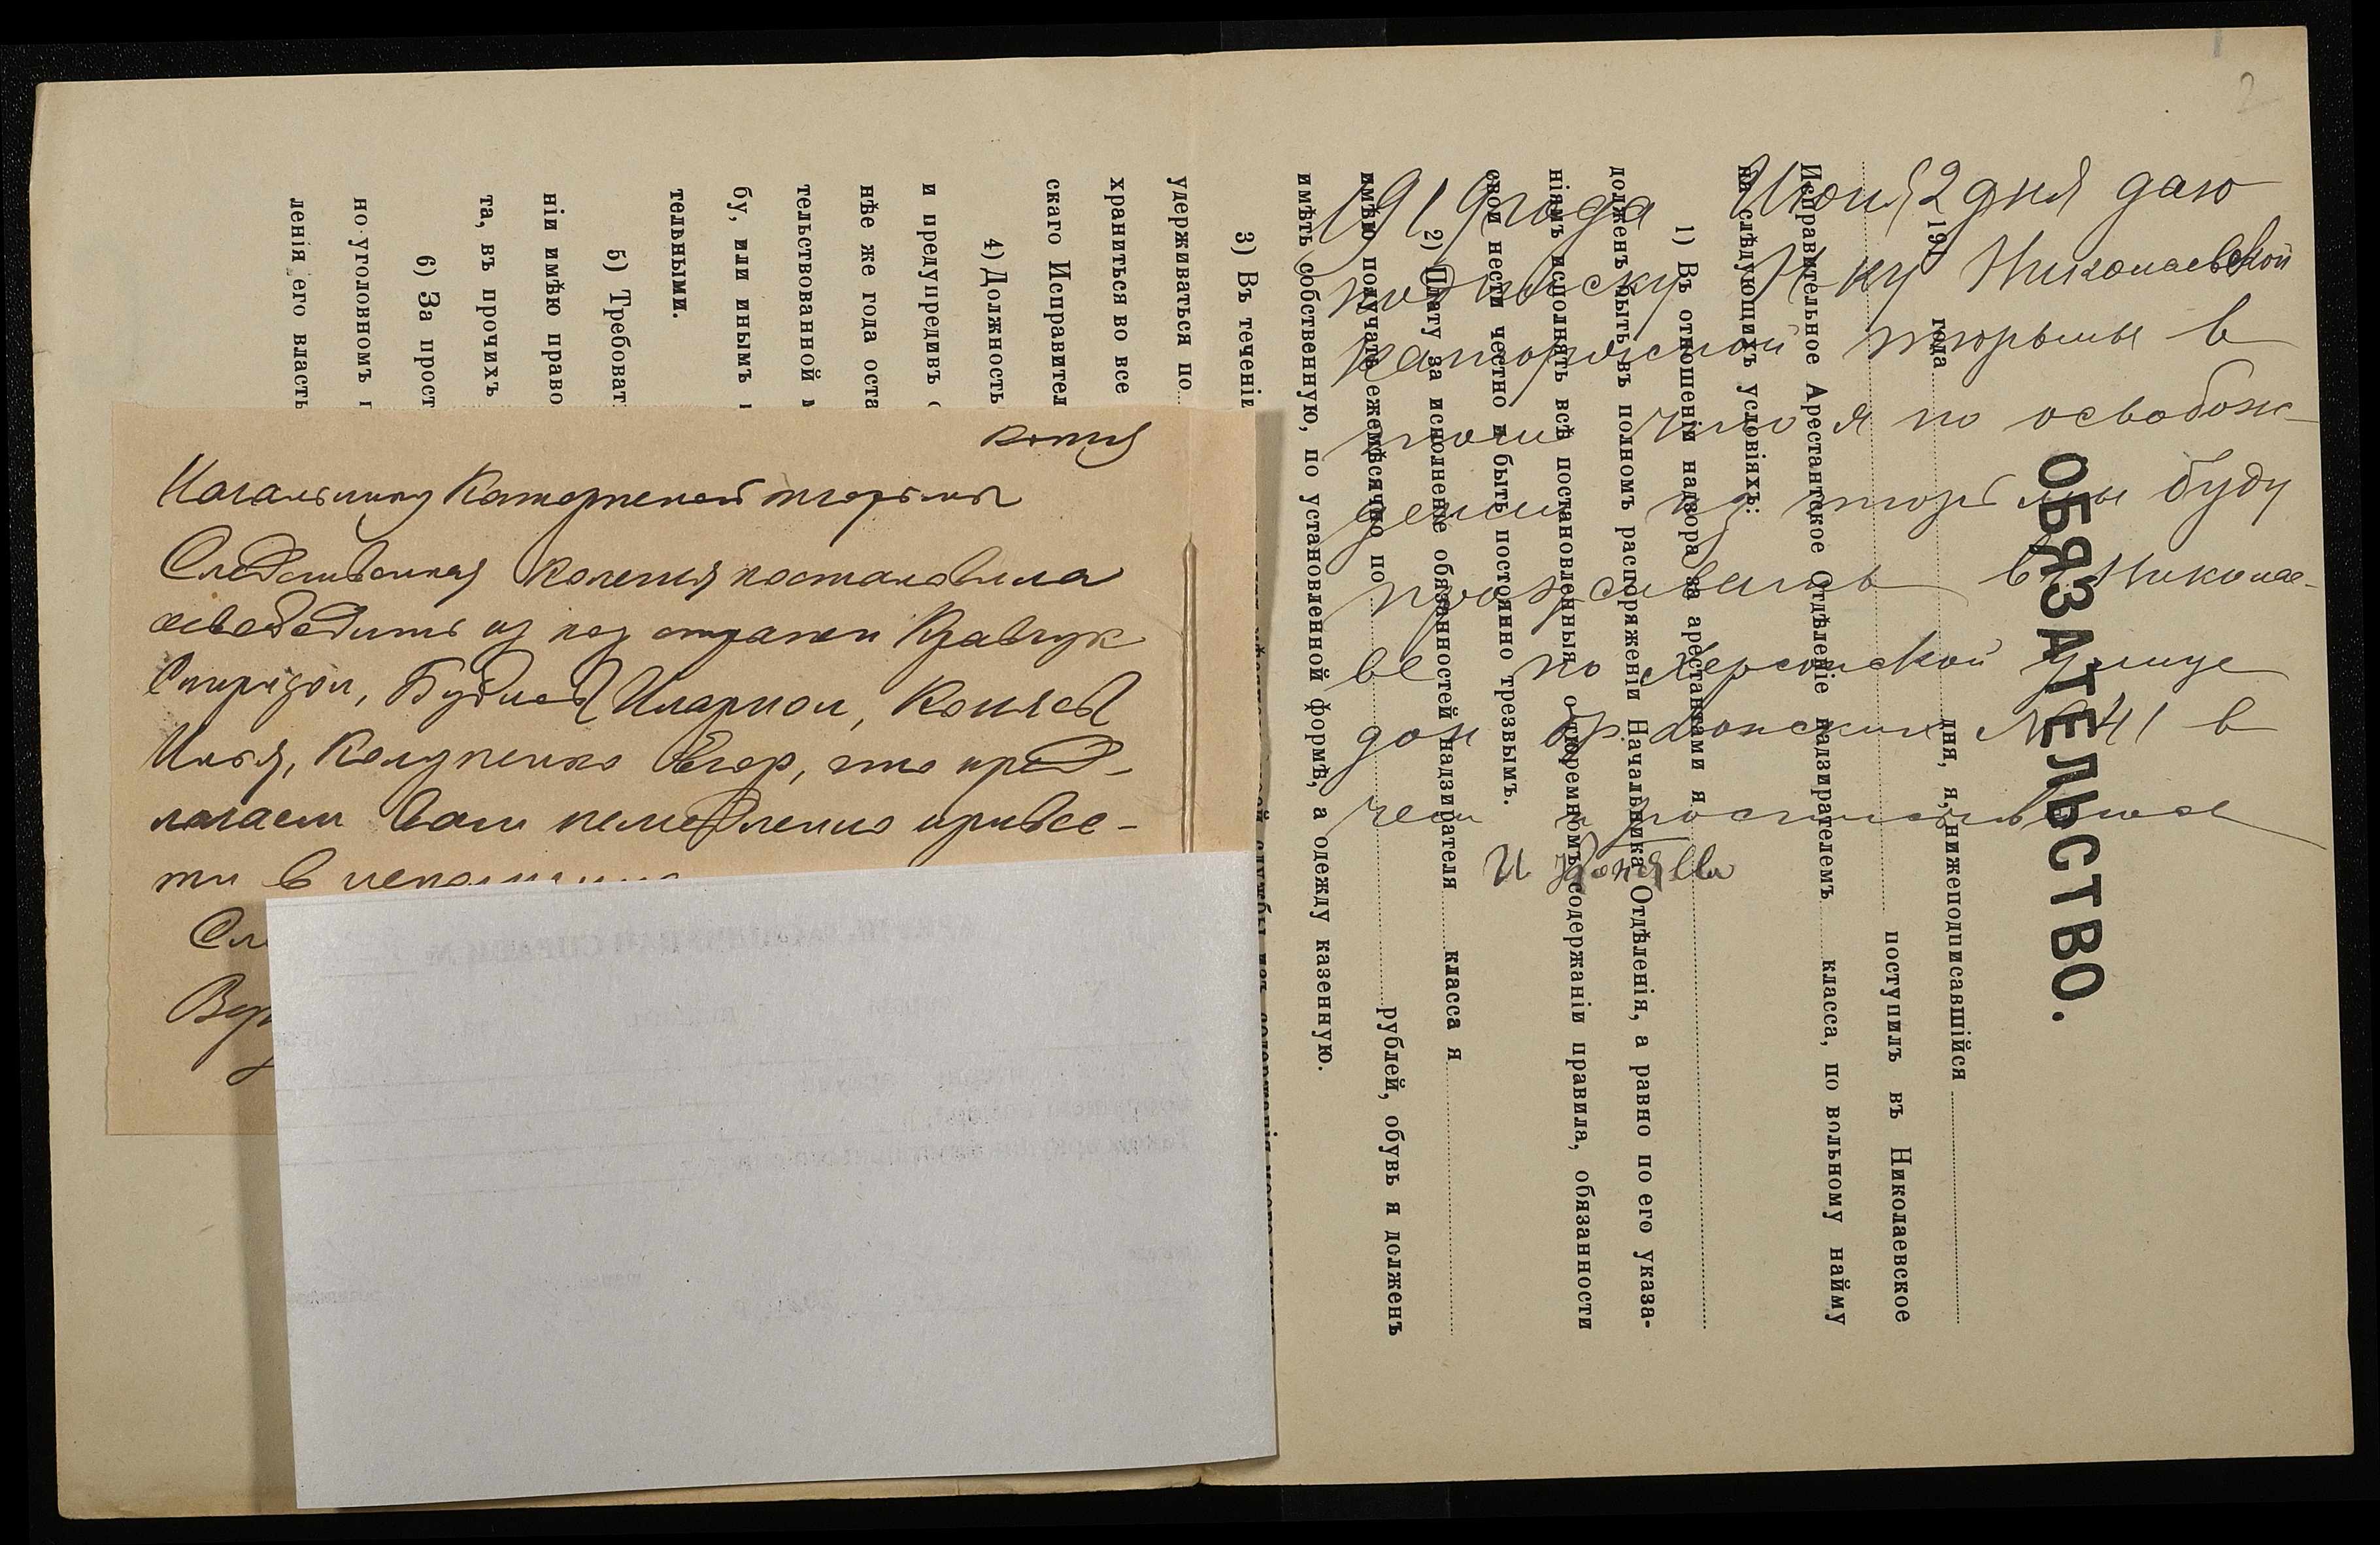 2
ОБЯЗАТЕЛЬСТВО.
191 года дня, я, нижеподписавшійся
поступилъ въ Николаевское
Исправительное Арестантское Отдѣленіе надзирателемъ класса, по вольному найму
на слѣдующихъ условіяхъ:
1) Въ отношеніи надзора за арестантами я
долженъ быть въ полномъ распоряженіи Начальника Отдѣленія, а равно по его указа-
ніямъ исполнять всѣ постановленныя о тюремномъ содержаніи правила, обязанности
свои нести честно и быть постоянно трезвымъ.
2) Плату за исполненіе обязанностей надзирателя класса я
имѣю получать ежемѣсячно по рублей, обувь я долженъ
имѣть собственную, по установленной формѣ, а одежду казенную.
3) Въ теченіе
удерживаться по
храниться во все
скаго Исправител
4) Должность
и предупредивъ
нѣе же года оста
тельствованной
бу, или инымъ
тельными.
5) Требоват
ніи имѣю право
та, въ прочихъ
6) За прост
но уголовномъ
ленія его власть
1919 года Июня 2 дня даю
подписку Н-ку Николаевской
каторжной тюрьмы в
том что я по освобож-
дении из тюрьмы буду
проживать в Никола-
ве по Херсонской улице
дом № 41 в
чем и
И Коняев
копия
Начальнику Каторжной тюрьмы
Следственная Колегия постановила
освободить из под стражи Кравчук
Спиридон, Будиев Иларион, Коняев
Илья, Колупенко Егор, что пред-
лагаем Вам немедленно приве-
ти в